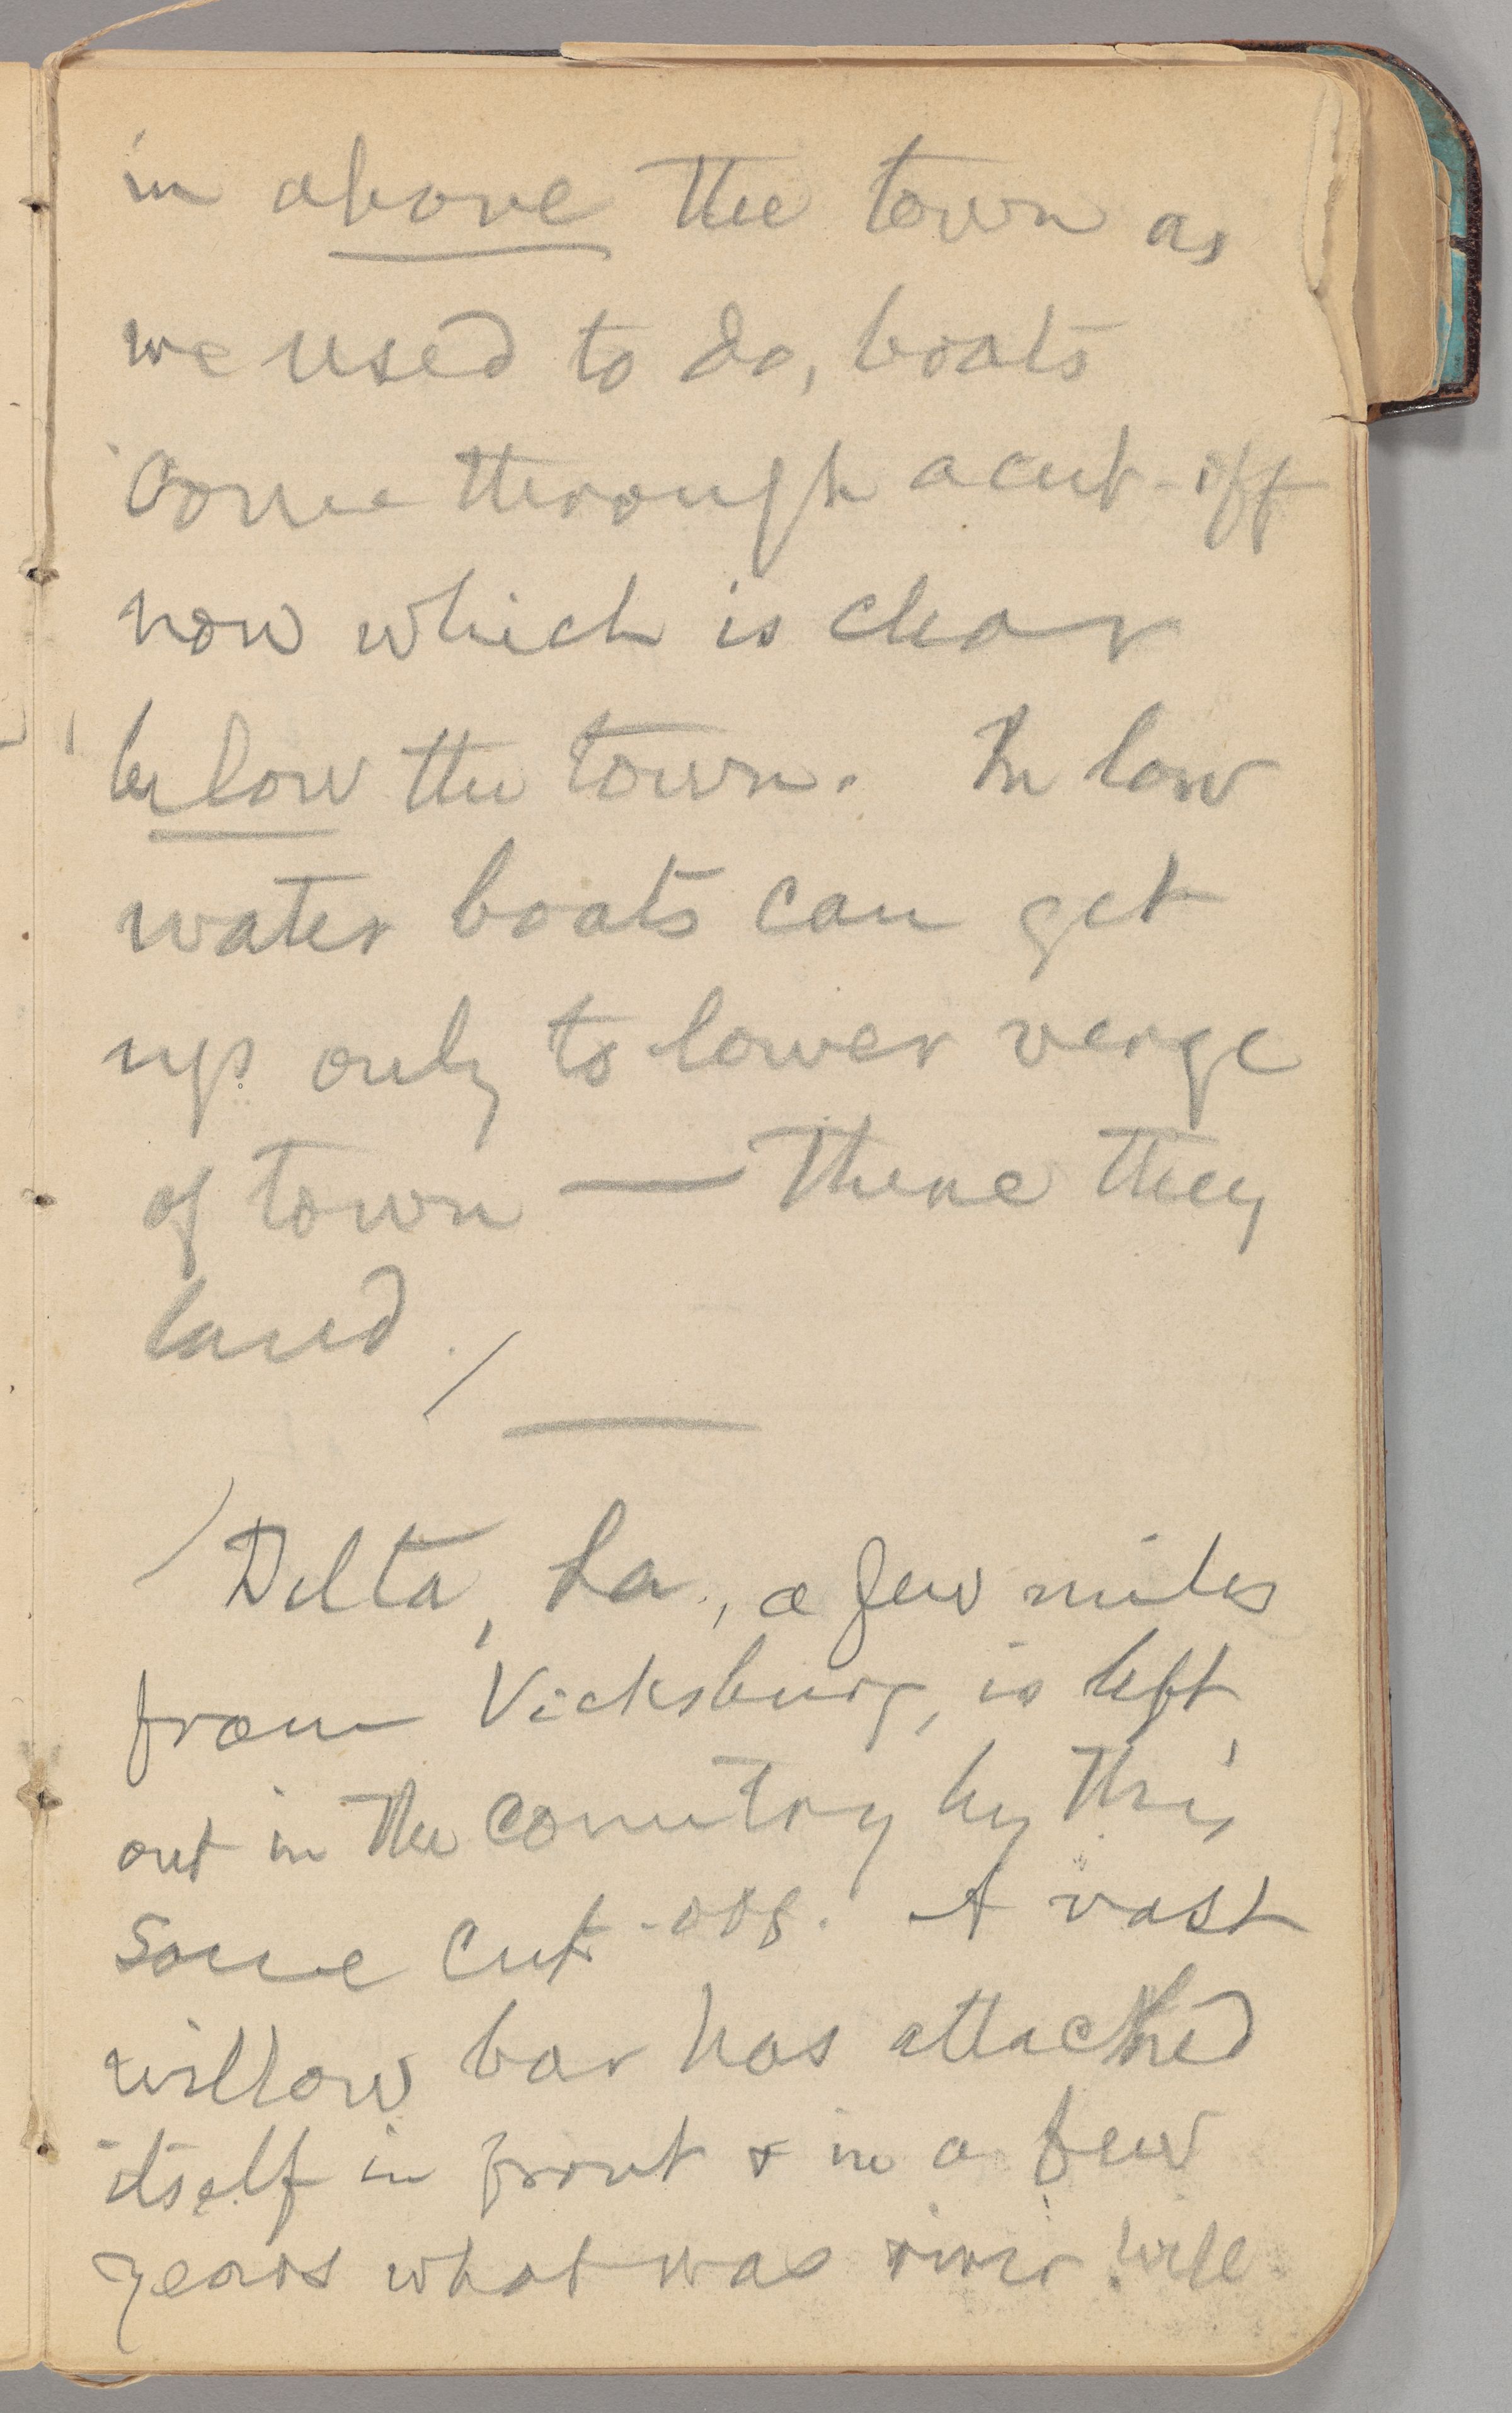 in above the town as
we used to do, boats
come through a cut-off
now which is clear
below the town. In low
water boats can get
up only to lower verge
of town — There they
land.
Delta, La., a few miles
from Vicksburg, is left,
out in the country by this
same cut-off. A vast
willow bar has attached
itself in front & in a few
years what was river will